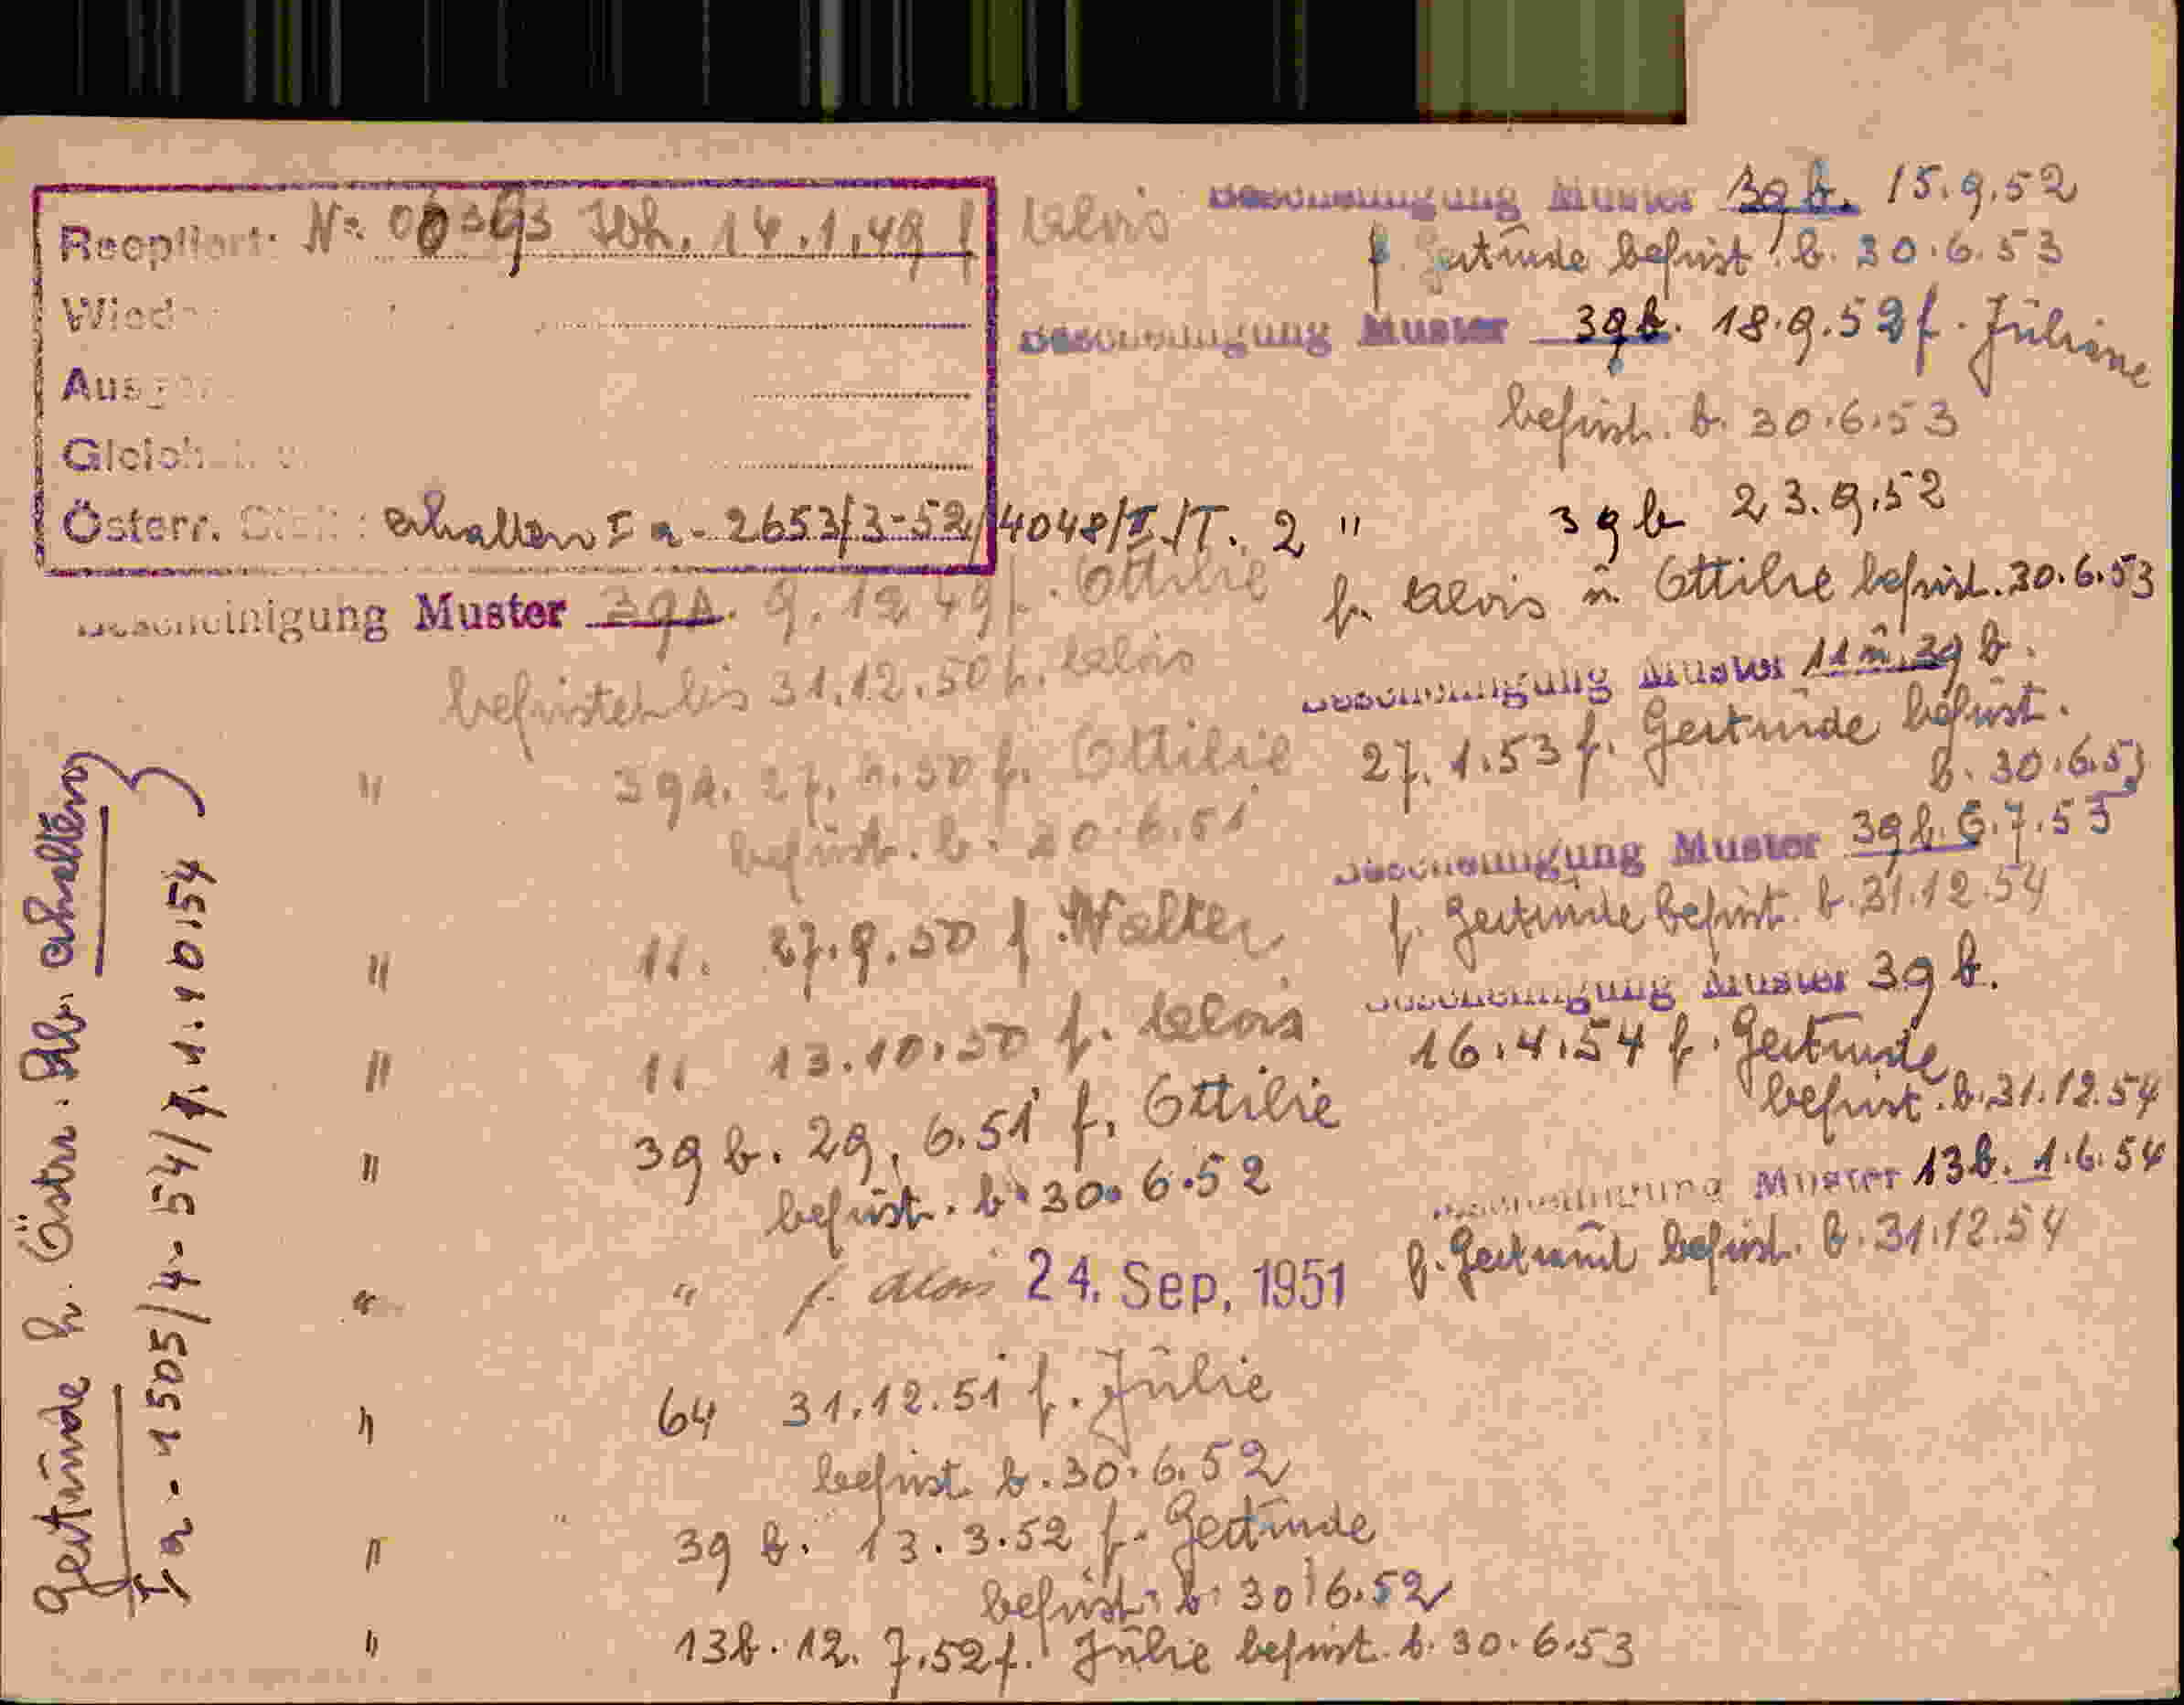 Reepiiert: Nº 00393 Wh. 14.1.49 f Alois
Wied
Aus
Gleich
Österr. erhalten I a - 2653/3-52/4048/I./T. 2
Bescheinigung Muster 39a. 9.12.49 f. Ottilie
befristet bis 31.12.50 f. Alois
" 39a. 27.6.50 f. Ottilie
befrist. b. 30.6.51
" 11. 27.9.50 f. Walter
" 11 13.10.50 f. Alois
" 39 b. 29.6.51 f. Ottilie
befrist. b. 30.6.52
" " f. Alois 24. Sep. 1951
" 64 31.12.51 f. Jülie
befrist. b. 30.6.52
" 39 b. 13.3.52 f. Gertrude
befrist. b. 30.6.52
" 13b. 12.7.52 f. Jülie befrist. b. 30.6.53
Bescheinigung Muster 39 b. 15.9.52
f. Gertrude befrist. b. 30.6.53
Bescheinigung Muster 39b. 18.9.52 f. Jüliane
befrist. b. 30.6.53
" 39b 23.9.52
f. Alois ü. Ottilie befrist. 30.6.53
Bescheinigung Muster 11 ü. 39 b.
27.1.53 f. Gertrude befrist.
b. 30.6.53
Bescheinigung Muster 39b. 6.7.53
f. Gertrude befrist. b. 31.12.54
Bescheinigung Muster 39 b.
16.4.54 f. Gertrude
befrist. b. 31.12.54
Bescheinigung Muster 13b. 1.6.54
f. Gertraud befrist. b. 31.12.54
Gertrude h. Östr. Stb. erhalten
I a - 1505/4-54/1.10.54